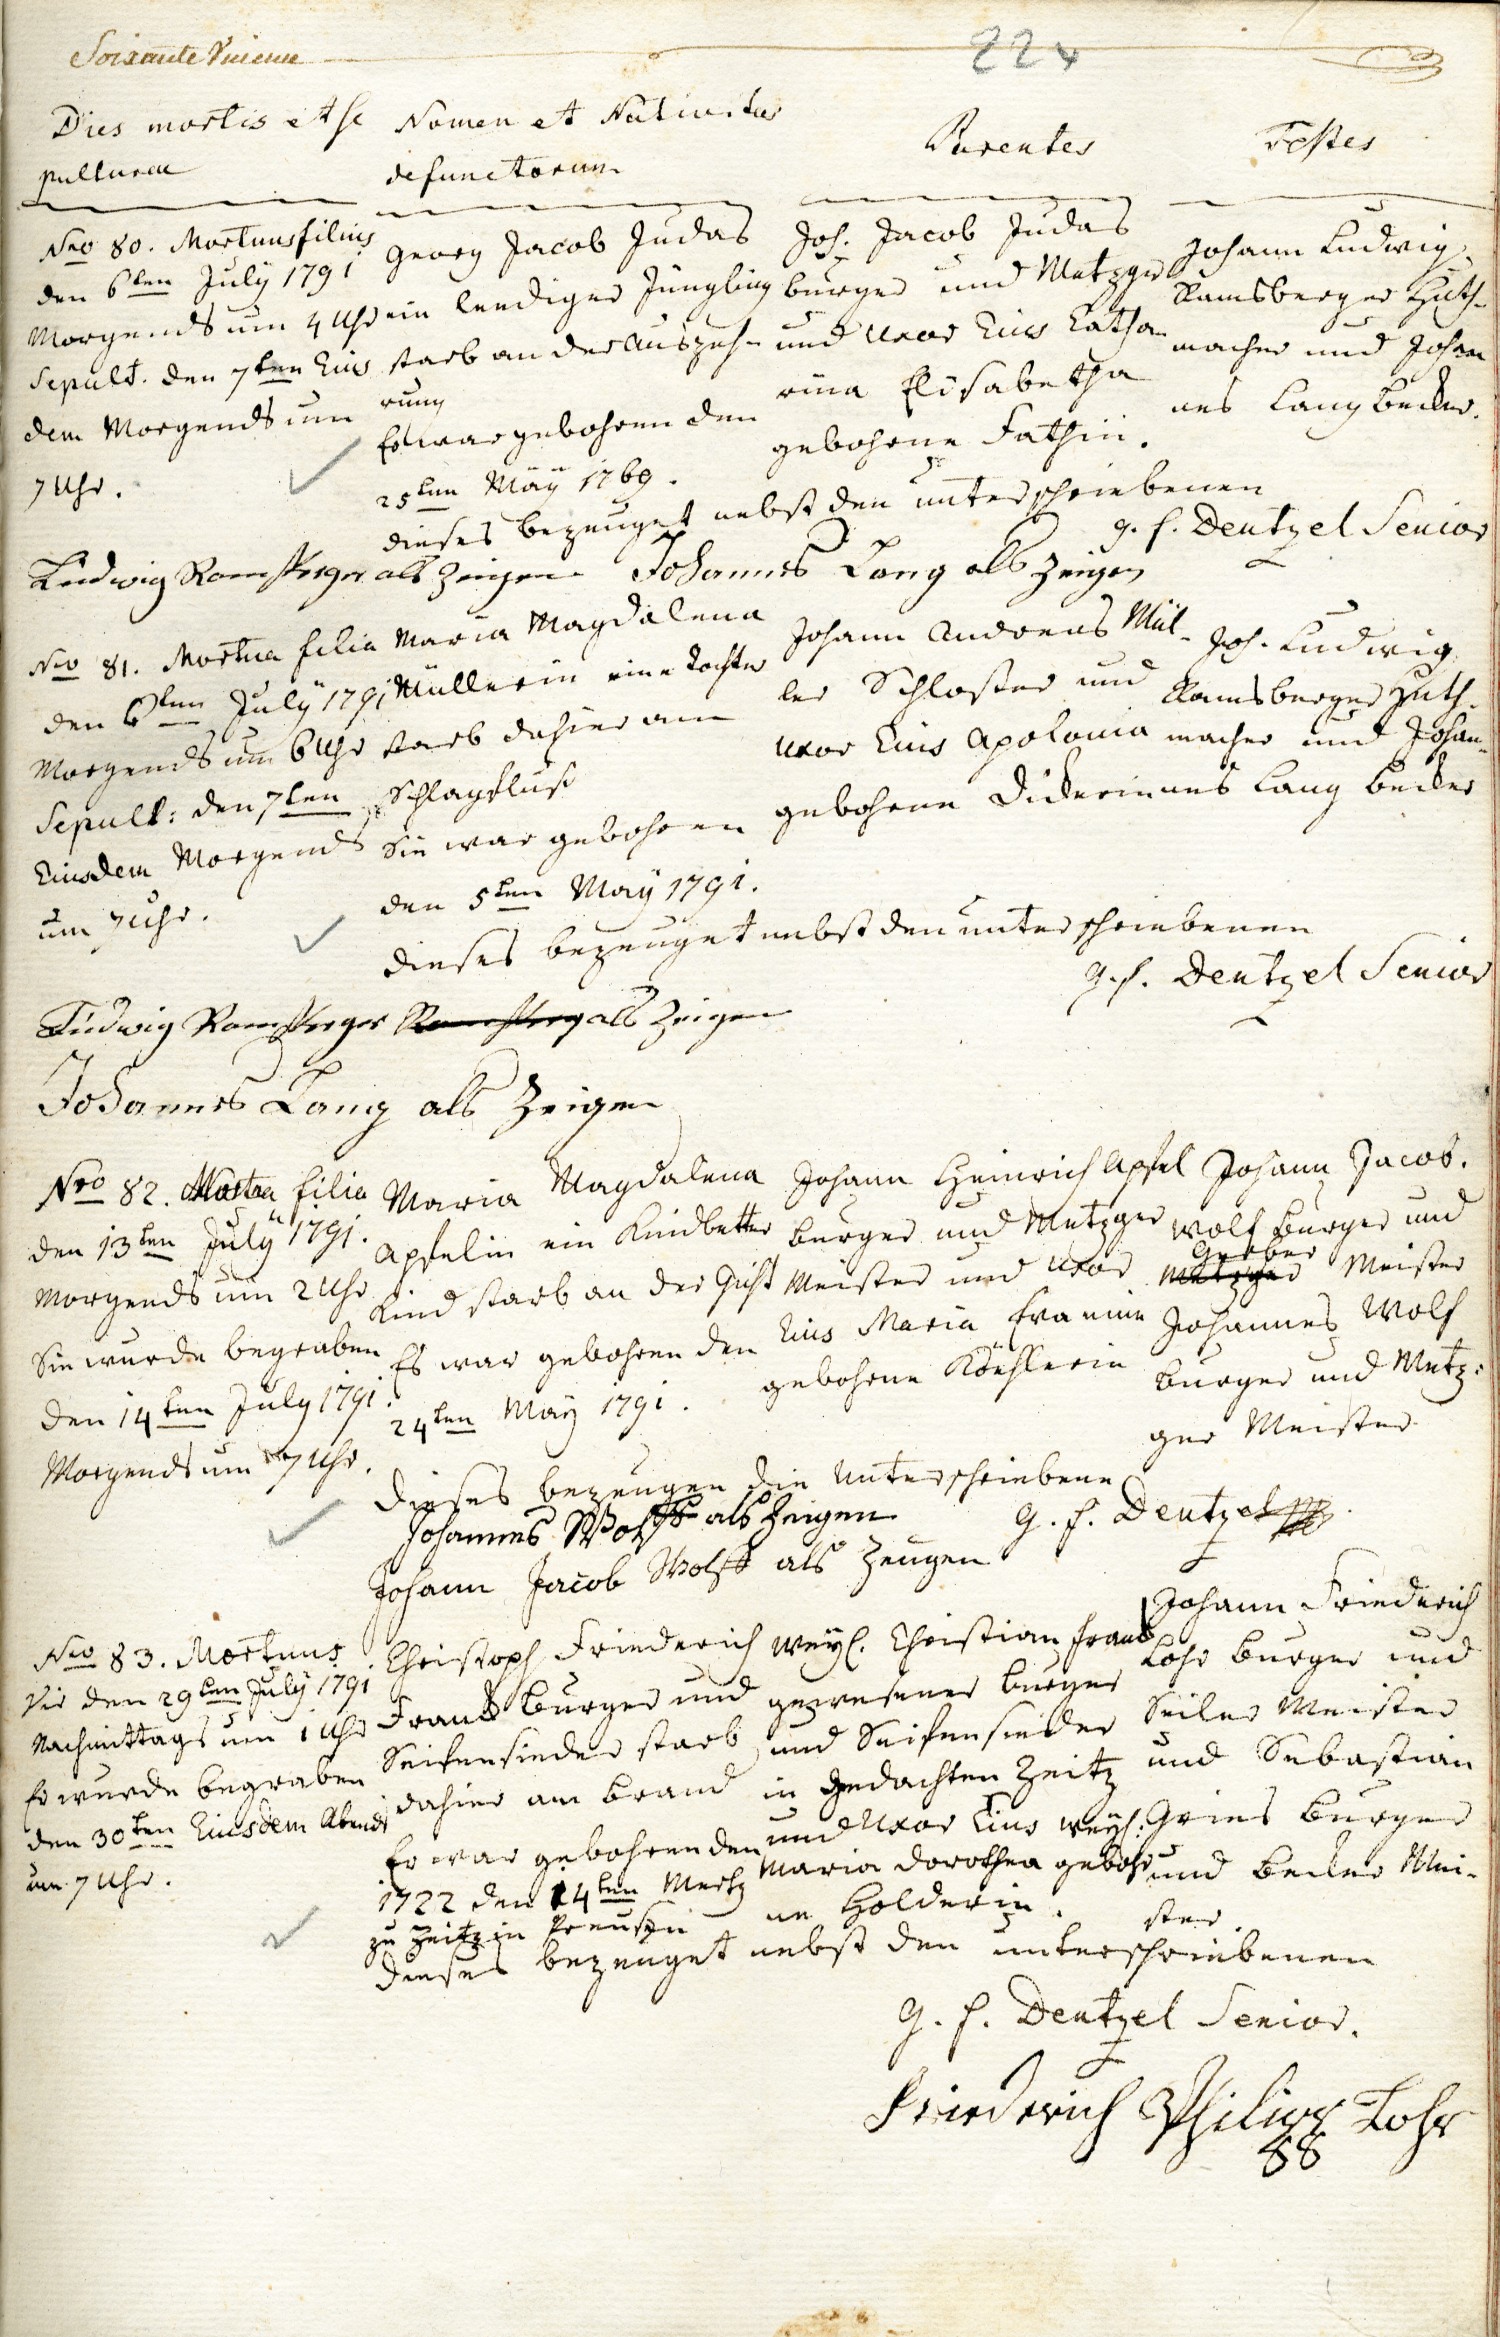 Soixante Vnieme
224
Dies mortis et se
pulturæ
Nomen et Nativitas
defunctorum
Parentes
Testes
Nro 80. Mortuus filius
den 6ten July 1791
Morgends um 4 Uhr
Sepult. den 7ten Eius
dem Morgends um
7 Uhr.
Georg Jacob Judas
ein lendiger Jüngling
starb an der Auszeh-
rung
Er war gebohren den
25ten Mäÿ 1769.
Joh. Jacob Judas
burger und Metzger
und Uxor Eius Catha-
rina Elisabetha
gebohrne Fathin.
Johann Ludwig
Ramsberger Huth-
macher und Johan
nes Lang becker.
dieses bezeuget nebst den unterschriebenen
g. f. Deutzel Senior
Ludwig Ramsberger als Zeigen Johannes Lang als Zeigen
Nro 81. Mortua filia
den 6ten July 1791
Morgends um 6 Uhr
Sepult: den 7ten
Eiusdem Morgends
um 7 Uhr.
Maria Magdalena
Müllerin eine Tochter
starb dahier am
Schlagfluß
Sie war gebohren
den 5ten Maÿ 1791.
Johann Andreas Mül-
ler Schlosser und
Uxor Eius Apolonia
gebohrne Dickerin
Joh. Ludwig
Ramsberger Huth-
macher und Johan-
nes Lang becker
dieses bezeuget nebst den unterschriebenen
g. f. Deutzel Senior
Ludwig Ramsberger als Zeigen
Johannes Lang als Zeigen
Nro 82. Mortua filia
den 13ten July 1791.
Morgends um 2 Uhr
Sie wurde begraben
den 14ten July 1791.
Morgends um 7 Uhr.
Maria Magdalena
Apfelin ein Kindbetter
Kind starb an der Gicht
Es war gebohren den
24ten Maÿ 1791.
Johann Heinrich Apfel
burger und Metzger
Meister und Uxor
Eius Maria Eva eine
gebohrne Köhlerin
Johann Jacob.
Wolf burger und
Gerber
Metzger Meister
Johannes Wolf
burger und Metz:
ger Meister
dieses bezeugen die Unterschriebene
Johannes Wolff als Zeigen
g. f. Deutzel
Johann Jacob Wolff als Zeugen
Nro 83. Mortuus
Vir den 29ten July 1791.
Nachmittags um 1 Uhr
Er wurde begraben
den 30ten Eiusdem Abends
um 7 Uhr.
Christoph Friederich
Franck burger und
Seifensieder starb
dahier am brand
Er war gebohren den
1722 den 14ten Mertz
zu Zeitz in Preußen
Weyl. Christian Franck
gewesener burger
und Seifensieder
in gedachten Zeitz
und Uxor Eius Weyl:
Maria Dorothea gebohr
ne Holderin.
Johann Friederich
Lohr burger und
Seiler Meister
und Sebastian
Gries burger
und becker Mei-
ster.
dieses bezeuget nebst den unterschriebenen
g. f. Deutzel Senior.
Friederich Philipp Lohr
SG